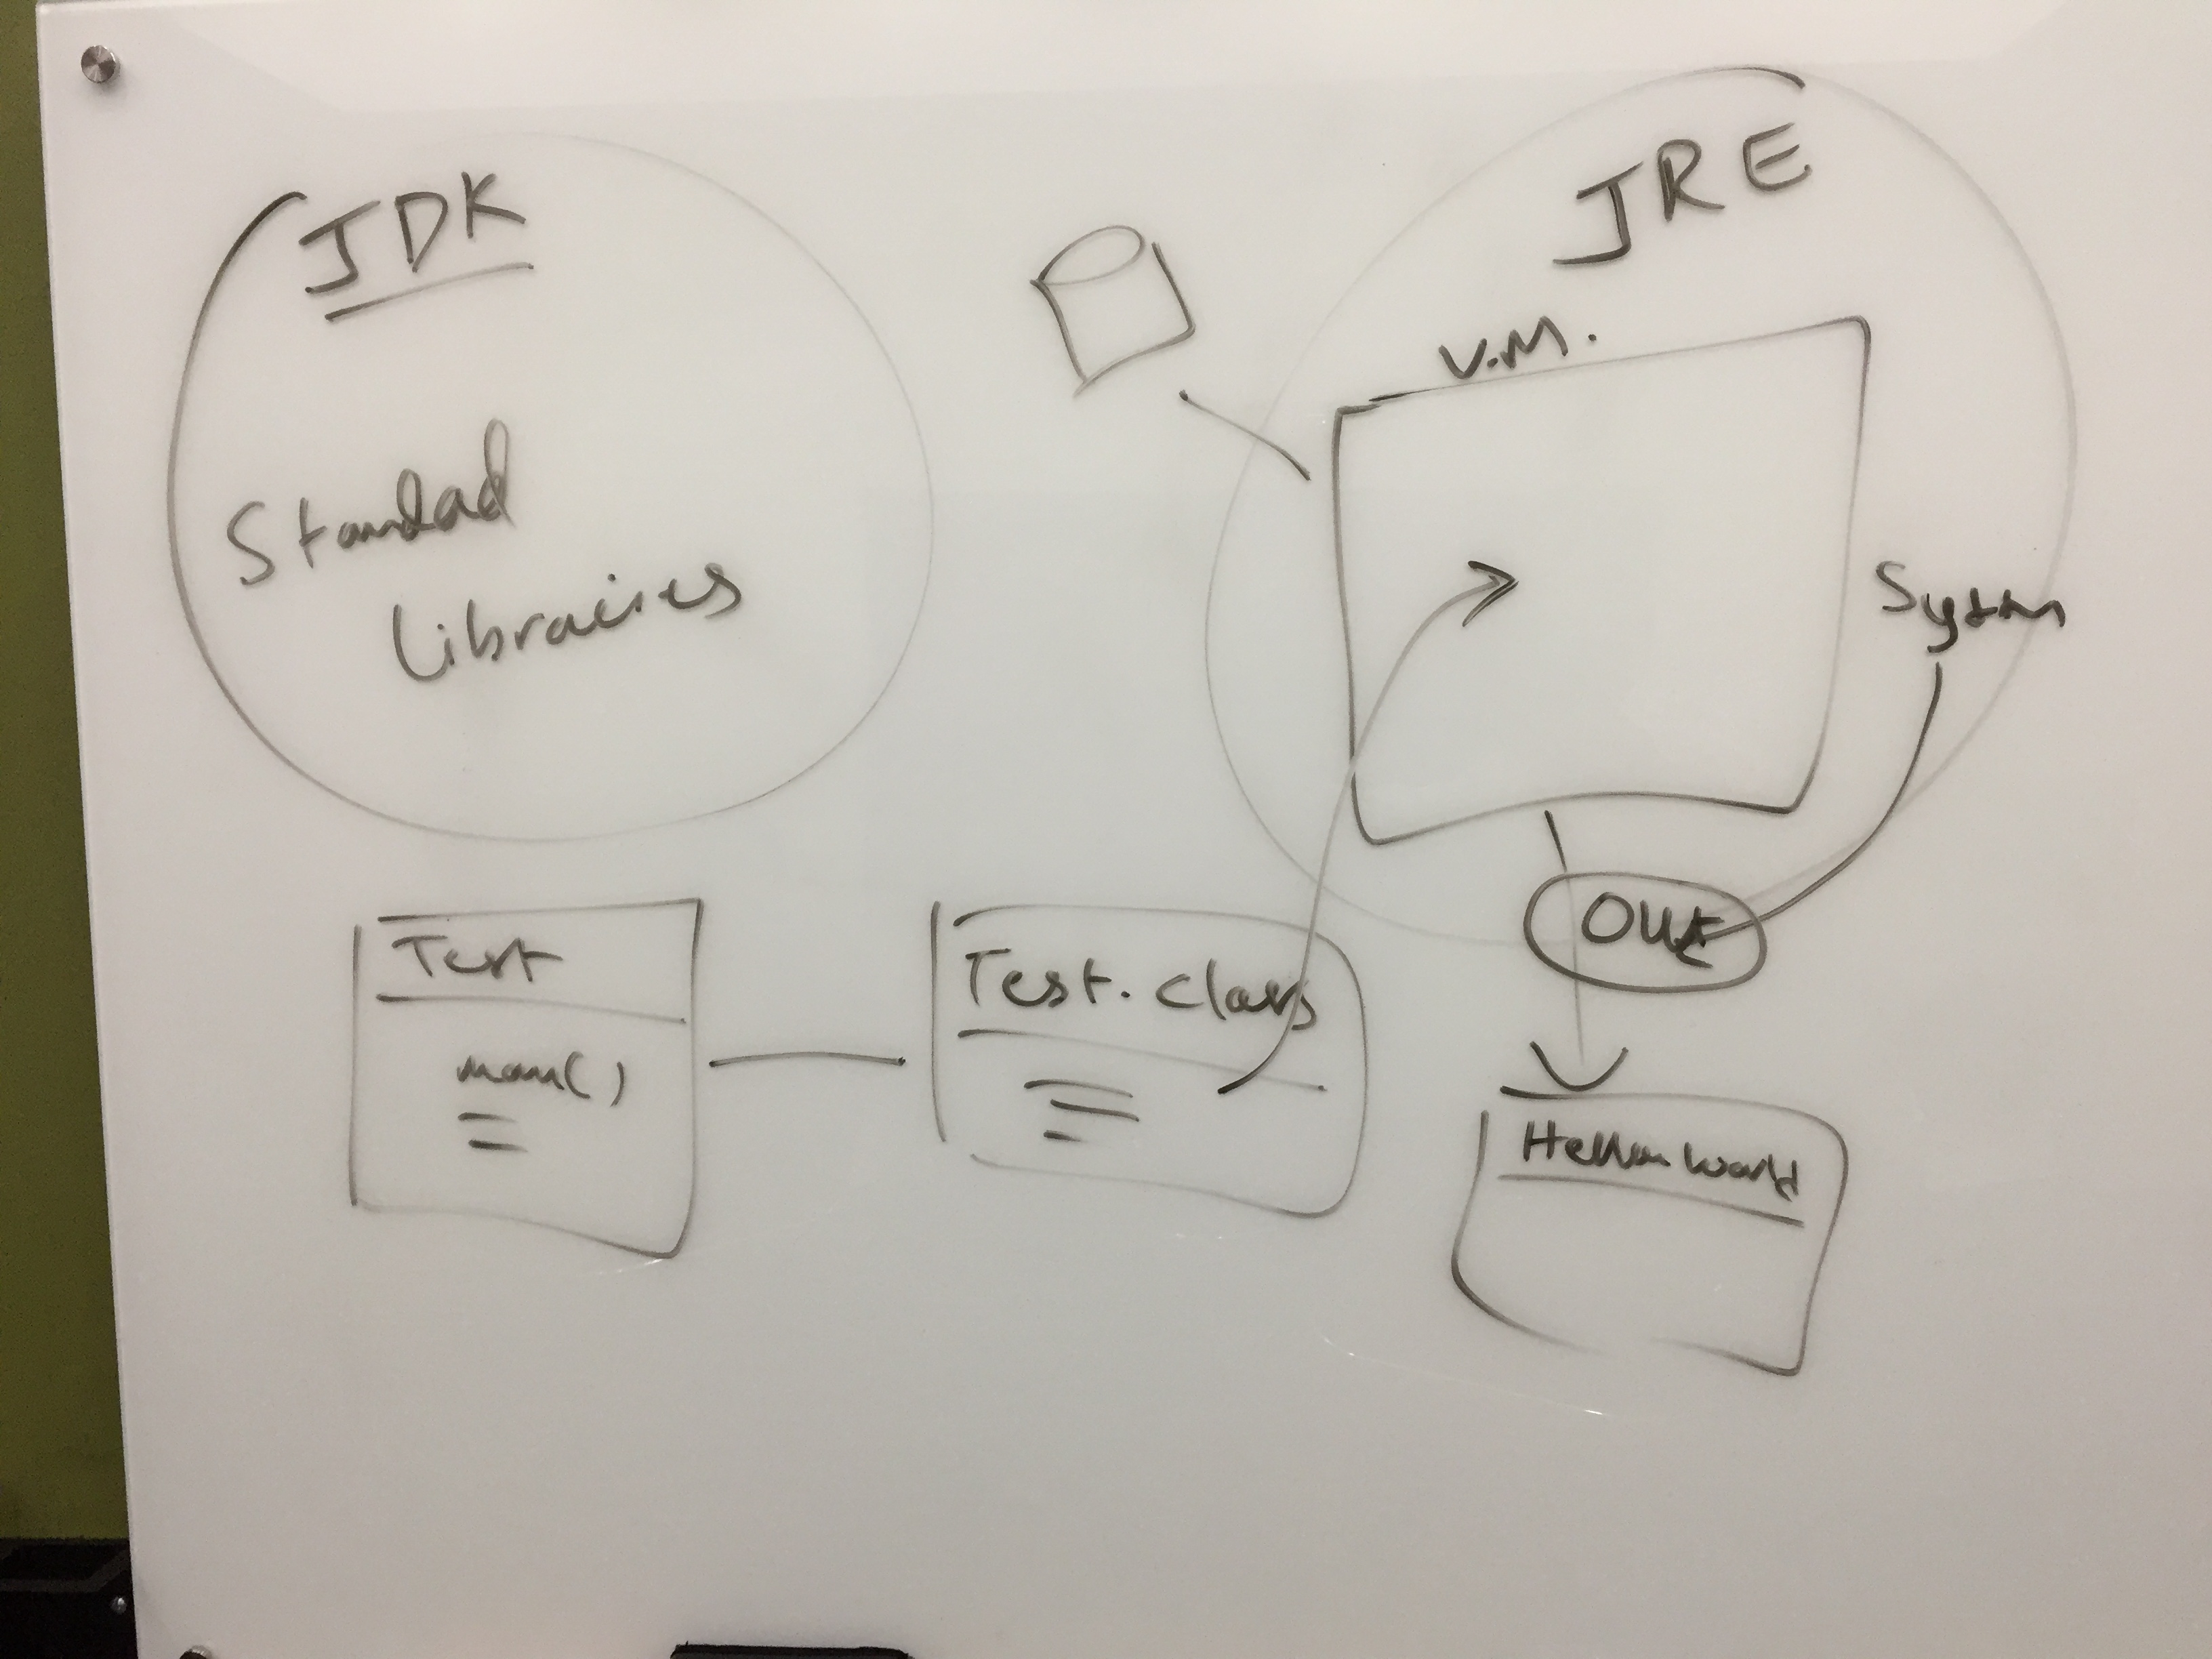 JDK
Standad
Libraries
JRE
V.M.
System
OUT
Test
main()
Test.class
Hello world